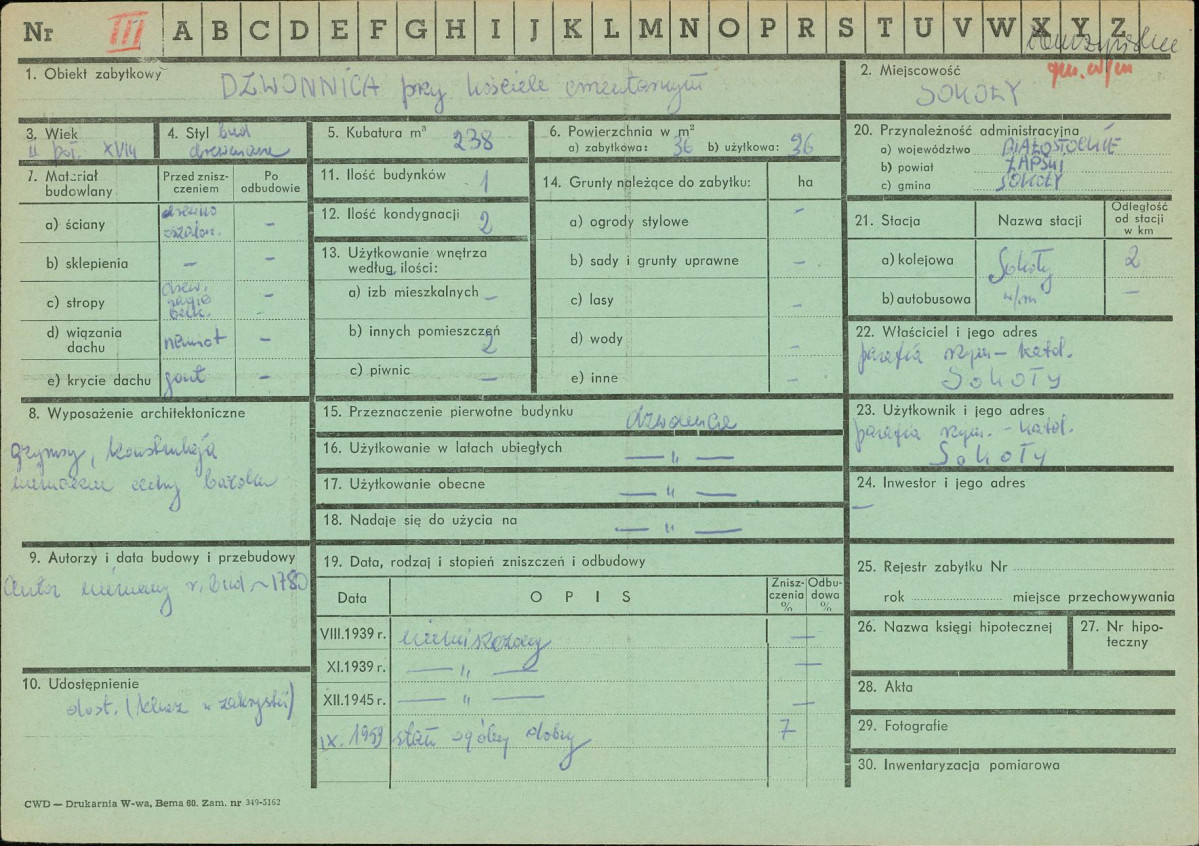 Nr III A B C D E F G H I J K L M N O P R S T U V W X Y Z
1. Obiekt zabytkowy DZWONNICA przy kościele cmentarnym
2. Miejscowość
SOKOŁY
3. Wiek
II poł. XVIII
4. Styl bud
drewniane
5. Kubatura m³ 238
6. Powierzchnia w m²
a) zabytkowa: 36 b) użytkowa: 36
7. Materiał budowlany
Przed zniszczeniem
Po odbudowie
a) ściany drewno oszalow. —
b) sklepienia — —
c) stropy drew. belk. —
d) wiązania dachu namiot —
e) krycie dachu gont —
8. Wyposażenie architektoniczne
gzymsy, konstrukcja
cechy baroku
9. Autorzy i data budowy i przebudowy
autor nieznany r. bud ~ 1780
10. Udostępnienie
dost. (klucz w zakrystii)
11. Ilość budynków 1
12. Ilość kondygnacji 2
13. Użytkowanie wnętrza
według ilości:
a) izb mieszkalnych —
b) innych pomieszczeń 2
c) piwnic —
14. Grunty należące do zabytku: ha
a) ogrody stylowe —
b) sady i grunty uprawne —
c) lasy —
d) wody —
e) inne —
15. Przeznaczenie pierwotne budynku dzwonnica
16. Użytkowanie w latach ubiegłych — " —
17. Użytkowanie obecne — " —
18. Nadaje się do użycia na — " —
19. Data, rodzaj i stopień zniszczeń i odbudowy
Data OPIS Zniszczenia % Odbudowa %
VIII.1939 r. nieuszkodzony —
XI.1939 r. — " — —
XII.1945 r. — " — —
IX. 1959 stan ogólny dobry 7
20. Przynależność administracyjna
a) województwo BIAŁOSTOCKIE
b) powiat ŁAPSKI
c) gmina SOKOŁY
21. Stacja Nazwa stacji Odległość od stacji w km
a) kolejowa Sokoły 2
b) autobusowa w/m —
22. Właściciel i jego adres
parafia rzym.-katol.
SOKOŁY
23. Użytkownik i jego adres
parafia rzym.-katol.
SOKOŁY
24. Inwestor i jego adres
—
25. Rejestr zabytku Nr
rok miejsce przechowywania
26. Nazwa księgi hipotecznej
27. Nr hipoteczny
28. Akta
29. Fotografie
30. Inwentaryzacja pomiarowa
CWD — Drukarnia W-wa, Bema 60. Zam. nr 349-5162